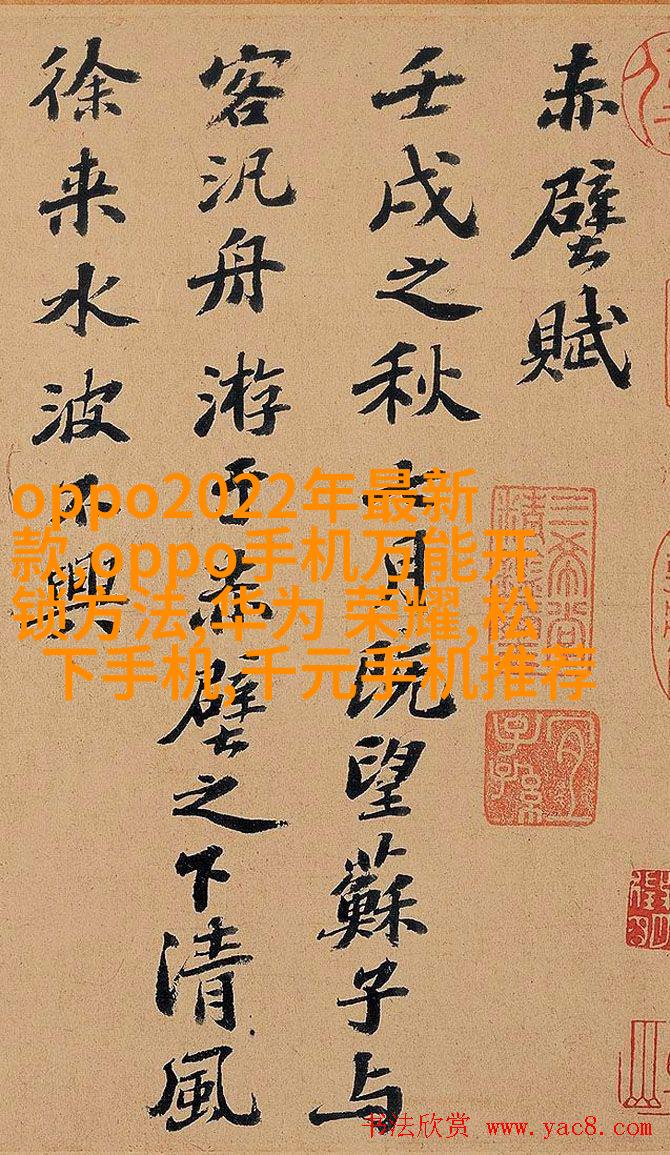 赤壁賦
壬戌之秋七月既望蘇子与
客汎舟游于赤壁之下清風
徐来水波不興
oppo2022年最新
款,oppo手机万能开
锁方法,华为 荣耀,松
下手机,千元手机推荐
三希堂
精鑑璽
宜子孫
书法欣赏 www.yac8.com